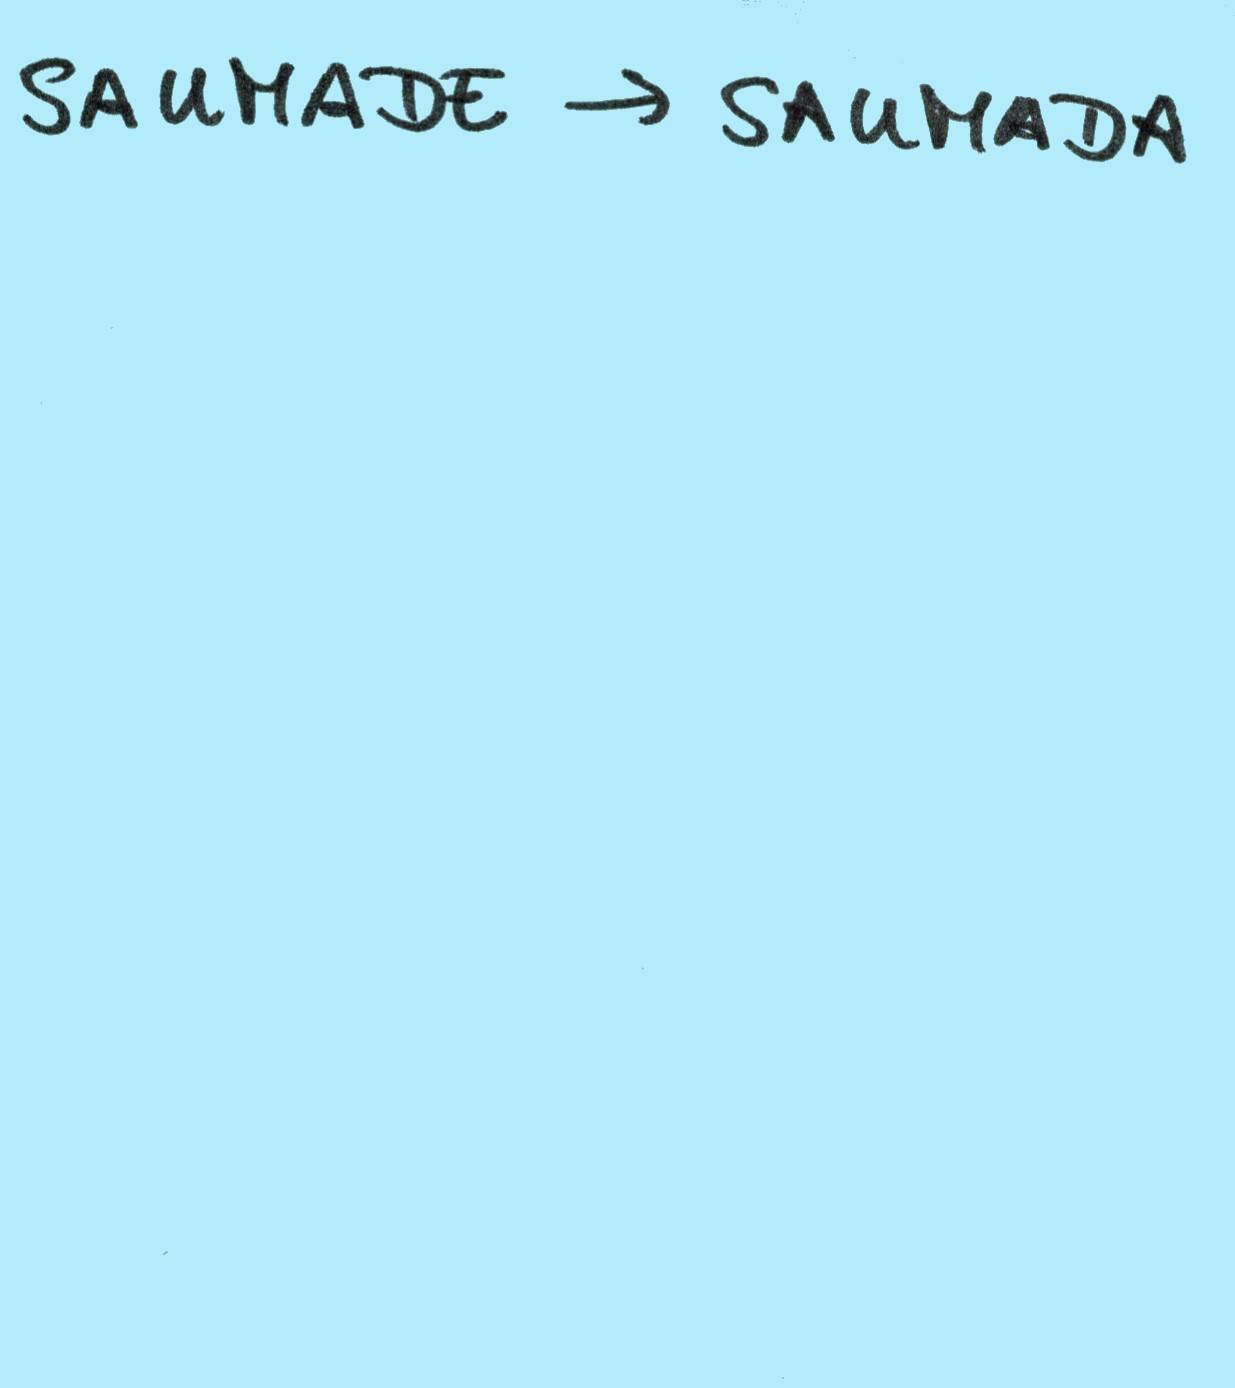 SAUMADE → SAUMADA